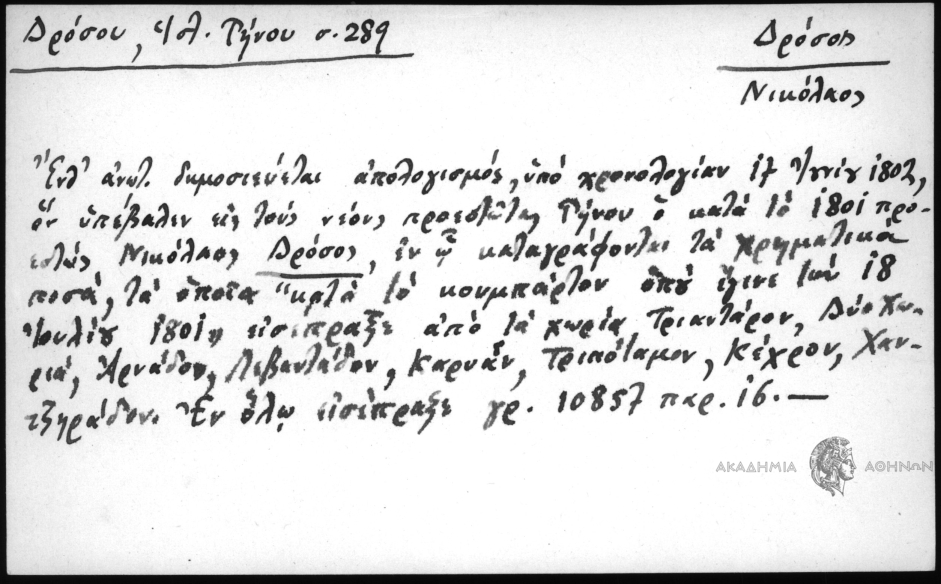 Δρόσου, Ἱστ. Τήνου σ. 289
Δρόσος
Νικόλαος
Ἔνθ' ἀνωτ. δημοσιεύεται ἀπολογισμός, ὑπὸ χρονολογίαν 17 Ἰουνίου 1802,
ὃν ὑπέβαλεν εἰς τοὺς νέους προεστῶτας Τήνου ὁ κατὰ τὸ 1801 προ-
εστὼς Νικόλαος Δρόσος, ἐν ᾧ καταγράφονται τὰ χρηματικὰ
ποσά, τὰ ὁποῖα "κατὰ τὸ κουμπάρτον ὁποῦ ἔγινε τῶν 18
Ἰουλίου 1801" εἰσέπραξε ἀπὸ τὰ χωρία Τριαντάρον, Δύο Χω-
ριά, Ἀρνάδον, Λεβαντάδον, Καρυάν, Τριπόταμον, Κέχρον, Χαν-
τζηράδον. Ἐν ὅλῳ εἰσέπραξε γρ. 10857 παρ. 16.—
ΑΚΑΔΗΜΙΑ ΑΘΗΝΩΝ